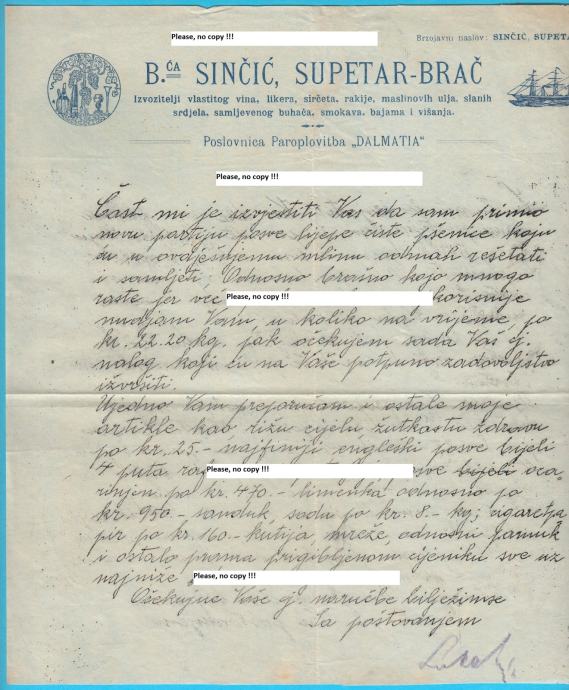 Please, no copy !!!
Brzojavni naslov: SINČIĆ, SUPETA
B.ĆA SINČIĆ, SUPETAR-BRAČ
Izvozitelji vlastitog vina, likera, sirćeta, rakije, maslinovih ulja, slanih
srdjela, samljevenog buhača, smokava, bajama i višanja.
Poslovnica Paroplovitba „DALMATIA“
Please, no copy !!!
Čast mi je izvjestiti Vas da sam primio
novu partiju posve lijepe čiste pšenice koju
ću u ovdješnjemu mlinu odmah rešetati
i samljeti; Odnosno brašno koje mnogo
raste jer već Please, no copy !!! korisnije
nudjam Vam, u koliko na vrijeme, po
kr. 22.20 kg. jak očekujem sada Vaš cj.
nalog koji ću na Vaše potpuno zadovoljstvo
izvršiti.
Ujedno Vam preporučam i ostale moje
artikle kao rižu cijelu žutkastu zdravu
po kr. 25.- najfiniji engleski posve bijeli
4 puta Please, no copy !!! bijeli oca
po kr. 470.- limenka odnosno po
kr. 950.- sanduk, sodu po kr. 8.- kg; cigareta
pir po kr. 160.- kutija, mreže, odnosni pamuk
i ostalo prama prigibljenom cijeniku sve uz
najniže Please, no copy !!!
Očekujuć Vaše cj. naručbe bilježimse
Sa poštovanjem